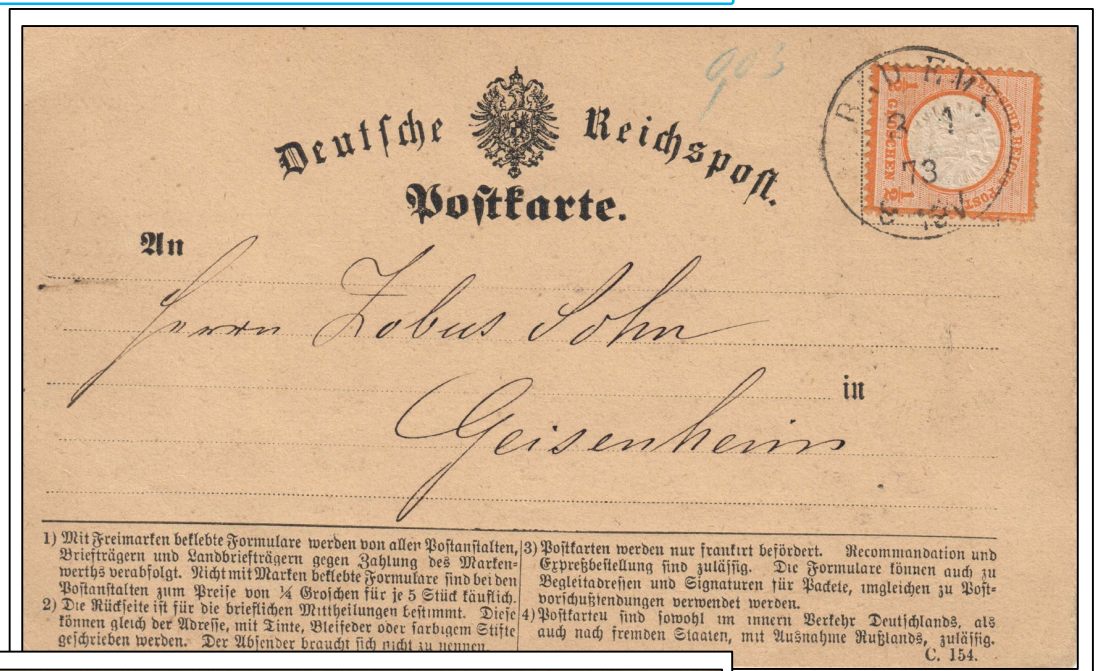 903
Deutsche Reichspost.
Postkarte.
BAD EMS
3 1
73
½ GROSCHEN ½
DEUTSCHE REICHS-POST
An
Herrn Zobus Sohn
in
Geisenheim
1) Mit Freimarken beklebte Formulare werden von allen Postanstalten,
Briefträgern und Landbriefträgern gegen Zahlung des Marken-
werths verabfolgt. Nicht mit Marken beklebte Formulare sind bei den
Postanstalten zum Preise von ¼ Groschen für je 5 Stück käuflich.
2) Die Rückseite ist für die brieflichen Mittheilungen bestimmt. Diese
können gleich der Adresse, mit Tinte, Bleifeder oder farbigem Stifte
geschrieben werden. Der Absender braucht sich nicht zu nennen.
3) Postkarten werden nur frankirt befördert. Recommandation und
Expreßbestellung sind zulässig. Die Formulare können auch zu
Begleitadressen und Signaturen für Packete, imgleichen zu Post-
vorschußsendungen verwendet werden.
4) Postkarten sind sowohl im innern Verkehr Deutschlands, als
auch nach fremden Staaten, mit Ausnahme Rußlands, zulässig.
C. 154.